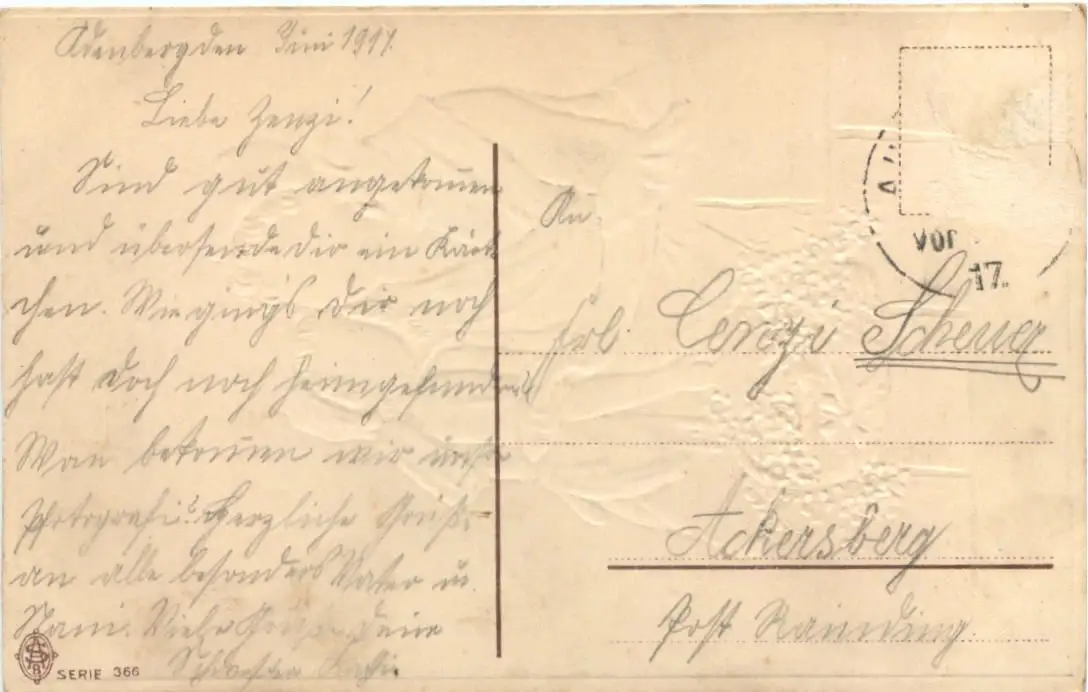 Juni 1917.
Liebe Zenzi!
Sind gut angekomen
und übersende Dir ein Kärt
chen. Wie ging's Dir noch
hast doch noch heimgefunden
Wan bekomen wir unsre
Herzliche Grüße
an alle besonders Vater u.
Viele Grüße Deine
Schwester
An.
Frl. Cenzi Scheuer
Ackersberg
Post
vor
17.
SERIE 366